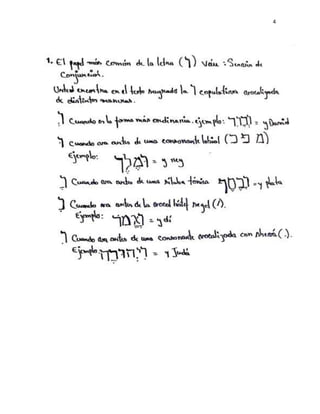 4
1. El papel más común de la letra (ו) Vau : Servía de
Conjunción.
Usted encontra en el texto sagrado la ו copulativa vocalizada
de distintas maneras.
וְ Cuando es la forma más ordinaria. ejemplo: וְדָוִד = y David
וּ Cuando va antes de una consonante labial (מ פ ב)
Ejemplo: וּמֶלֶך = y rey
וָ Cuando va antes de una sílaba tónica וָכֶסֶף = y plata
Cuando va antes de la vocal
Ejemplo: = y di
Cuando va antes de una consonante vocalizada con shevá (:).
Ejemplo: וִיהוּדָה = y Judá